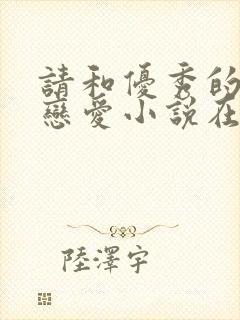 請和優秀的
戀愛小說在
陸澤宇